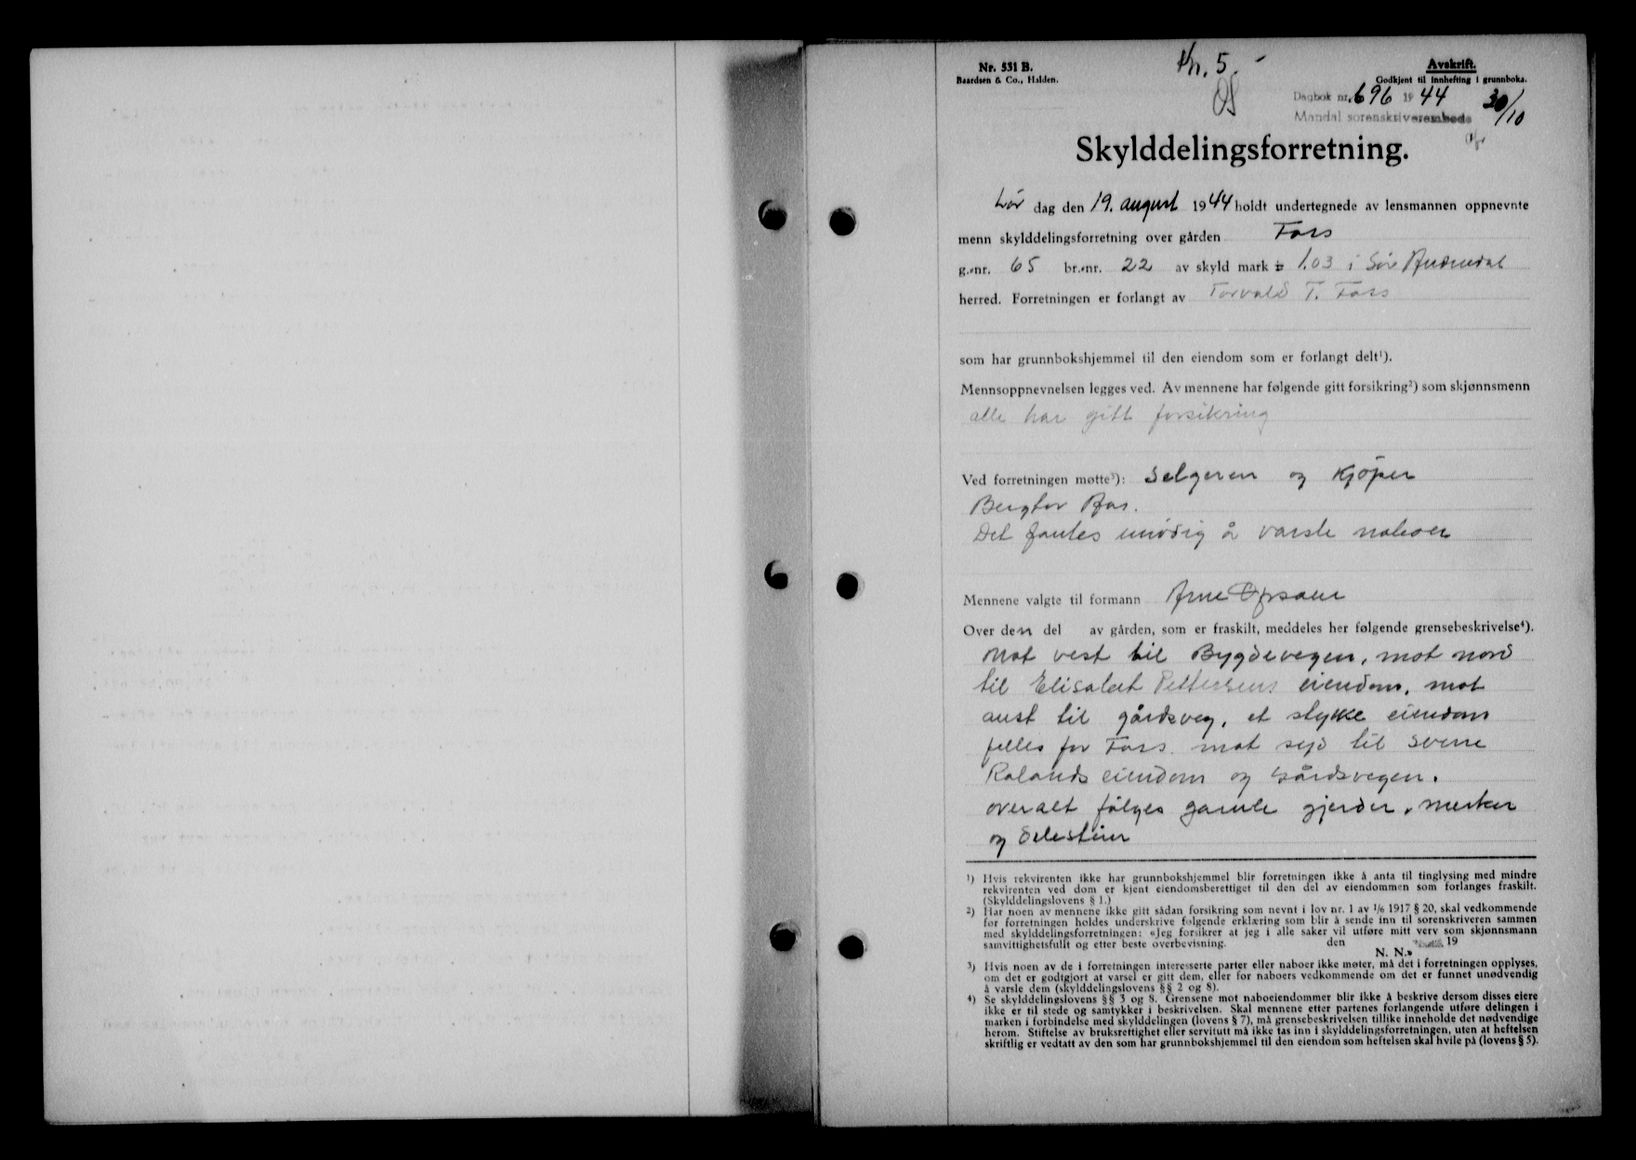 Nr. 531 B.
Baardsen & Co., Halden.
Kr. 5.-
Avskrift.
Godkjent til innhefting i grunnboka.
Dagbok nr. 696 1944 30/10
Mandal sorenskriverembede
Skylddelingsforretning.
Lør dag den 19. august 1944 holdt undertegnede av lensmannen oppnevnte
menn skylddelingsforretning over gården Foss
g.-nr. 65 br.-nr. 22 av skyld mark 1.03 i Sør Audnedal
herred. Forretningen er forlangt av Torvald T. Foss
som har grunnbokshjemmel til den eiendom som er forlangt delt¹).
Mennsoppnevnelsen legges ved. Av mennene har følgende gitt forsikring²) som skjønnsmenn
alle har gitt forsikring
Ved forretningen møtte³): Selgeren og Kjöper
Bergtor
Det fantes unödig å varsle naboer
Mennene valgte til formann Arne
Over den del av gården, som er fraskilt, meddeles her følgende grensebeskrivelse⁴).
Mot vest til Bygdevegen, mot nord
til Elisabet Pettersens eiendom, mot
aust til gårdsveg, et stykke eiendom
felles for Foss. mot syd til Sverre
Rolands eiendom og Gårdsvegen.
overalt fölges gamle gjerder, merker
og delesteiner
¹) Hvis rekvirenten ikke har grunnbokshjemmel blir forretningen ikke å anta til tinglysing med mindre
rekvirenten ved dom er kjent eiendomsberettiget til den del av eiendommen som forlanges fraskilt.
(Skylddelingslovens § 1.)
²) Har noen av mennene ikke gitt sådan forsikring som nevnt i lov nr. 1 av 1/6 1917 § 20, skal vedkommende
før forretningen holdes underskrive følgende erklæring som blir å sende inn til sorenskriveren sammen
med skylddelingsforretningen: «Jeg forsikrer at jeg i alle saker vil utføre mitt verv som skjønnsmann
samvittighetsfullt og etter beste overbevisning. den 19
N. N.»
³) Hvis noen av de i forretningen interesserte parter eller naboer ikke møter, må det i forretningen opplyses,
om det er godtgjort at varsel er gitt dem, eller for naboers vedkommende om det er funnet unødvendig
å varsle dem (skylddelingslovens §§ 2 og 8).
⁴) Se skylddelingslovens §§ 3 og 8. Grensene mot naboeiendommer blir ikke å beskrive dersom disses eiere
ikke er til stede og samtykker i beskrivelsen. Skal mennene etter partenes forlangende utføre delingen i
marken i forbindelse med skylddelingen (lovens § 7), må grensebeskrivelsen tillike inneholde det nødvendige
herom. Stiftelse av bruksrettighet eller servitutt må ikke tas inn i skylddelingsforretningen, uten at heftelsen
skriftlig er vedtatt av den som har grunnbokshjemmel til den eiendom som heftelsen skal hvile på (lovens § 5).